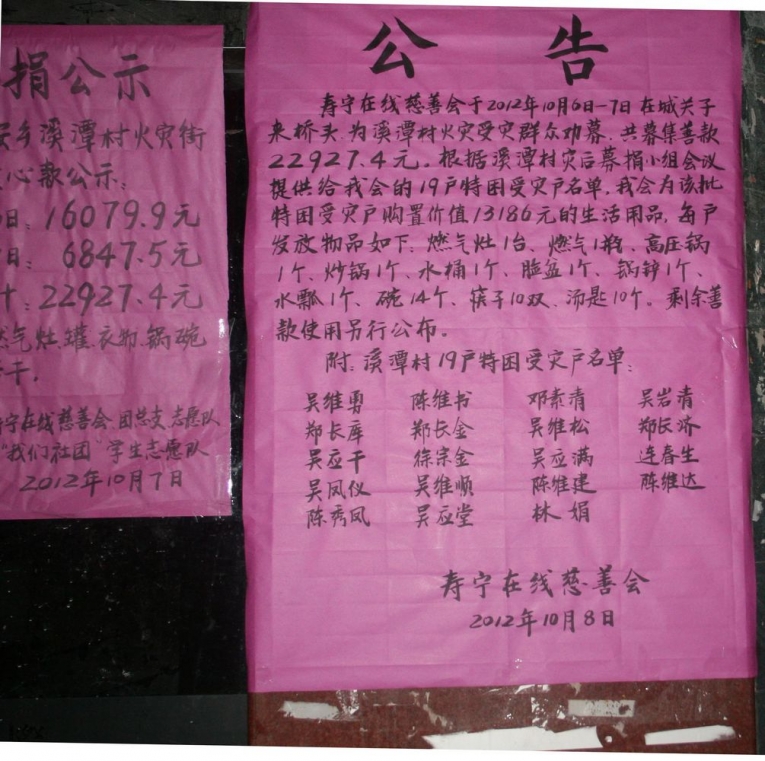 捐公示
安乡溪潭村火灾街
心款公示:
日:16079.9元
日: 6847.5元
计:22927.4元
燃气灶.罐.衣物.锅碗
若干.
寿宁在线慈善会.团总支志愿队
"我们社团"学生志愿队
2012年10月7日
公 告
寿宁在线慈善会于2012年10月6日-7日在城关子
来桥头.为溪潭村火灾受灾群众劝募.共募集善款
22927.4元.根据溪潭村灾后募捐小组会议
提供给我会的19户特困受灾户名单,我会为该批
特困受灾户购置价值13186元的生活用品,每户
发放物品如下:燃气灶1台、燃气1瓶、高压锅
1个、炒锅1个、水桶1个、脸盆1个、锅锌1个、
水瓢1个、碗14个、筷子10双、汤匙10个。剩余善
款使用另行公布。
附:溪潭村19户特困受灾户名单:
吴维勇 陈维书 邓素清 吴岩清
郑长库 郑长金 吴维松 郑长济
吴应干 徐宗金 吴应满 连春生
吴凤仪 吴维顺 陈维建 陈维达
陈秀凤 吴应堂 林娟
寿宁在线慈善会
2012年10月8日